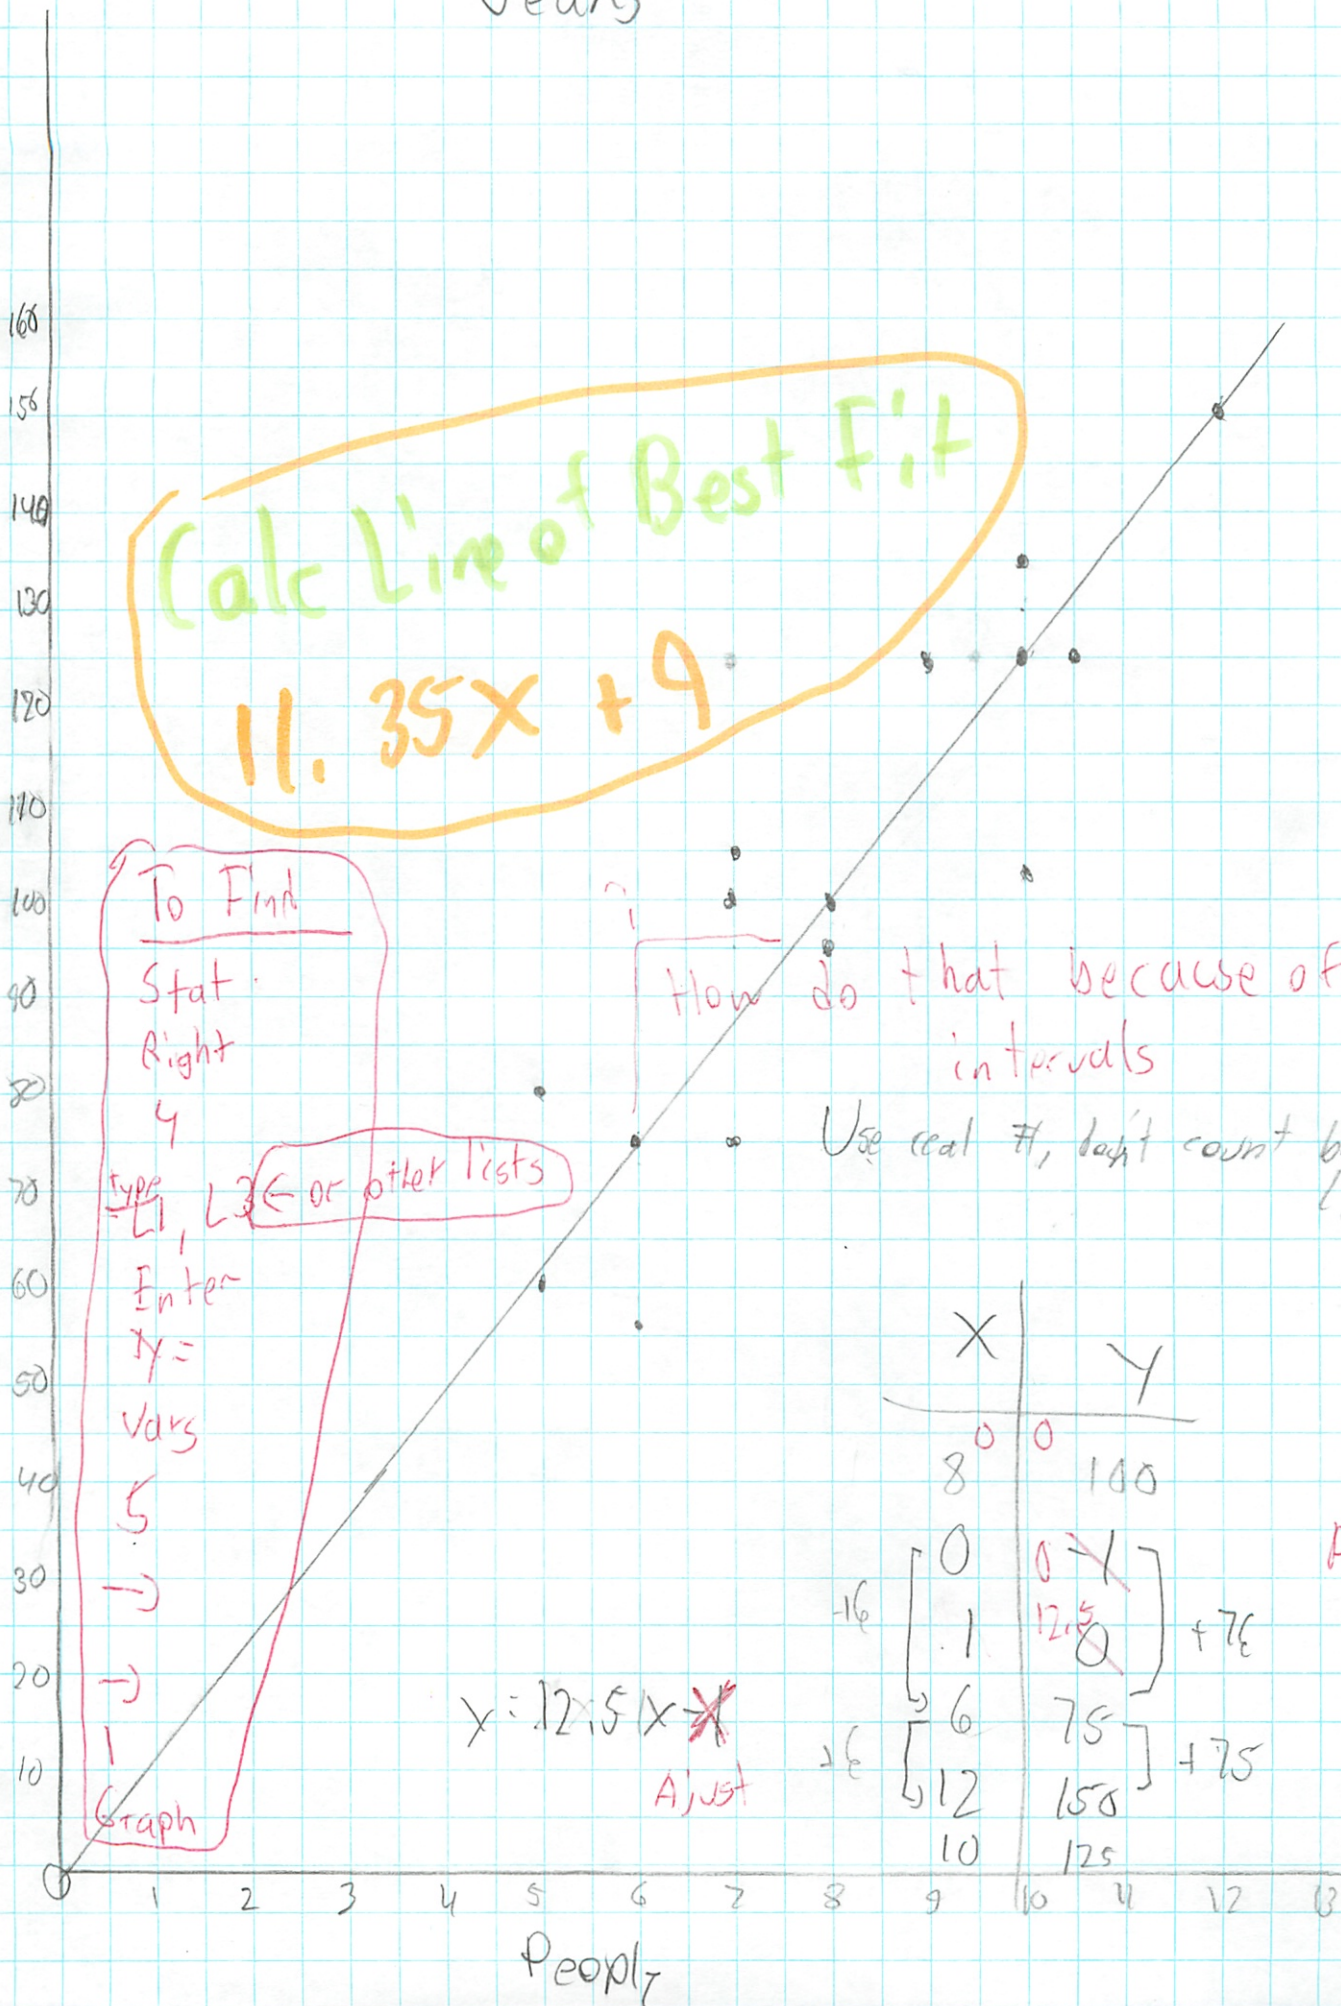 Years
160
150
140
130
120
110
100
90
80
70
60
50
40
30
20
10
0
Calc Line of Best Fit
11.35x + 9
To Find
Stat
Right
4
type
L1, L3 ← or other lists
Enter
Y=
Vars
5
→
→
1
Graph
How do that because of
intervals
Use real #, don't count
X Y
0 0
8 100
0 0 -1
1 12.5 0
6 75
12 150
10 125
+6
+76
+6
+75
y=12.5x-1
Ajust
1 2 3 4 5 6 7 8 9 10 11 12 13